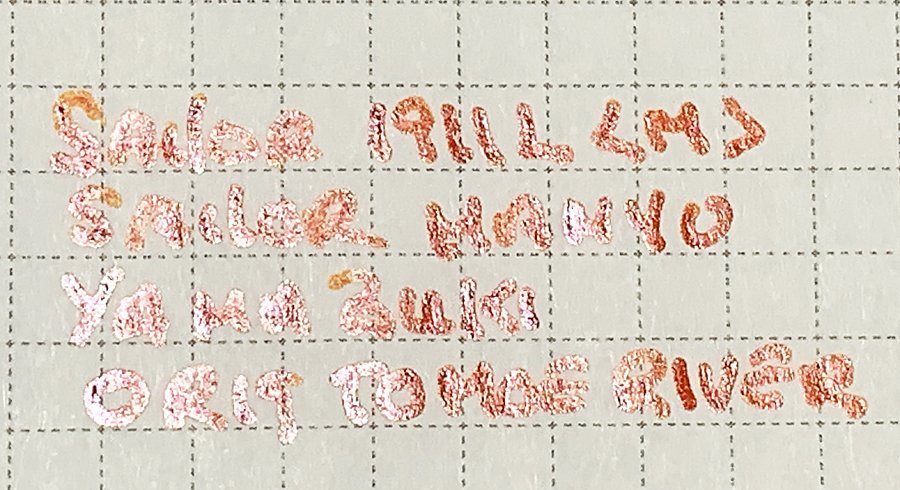 SAILOR 1911L <M>
SAILOR MANYO
YAMAZUKI
ORIG TOMOE RIVER